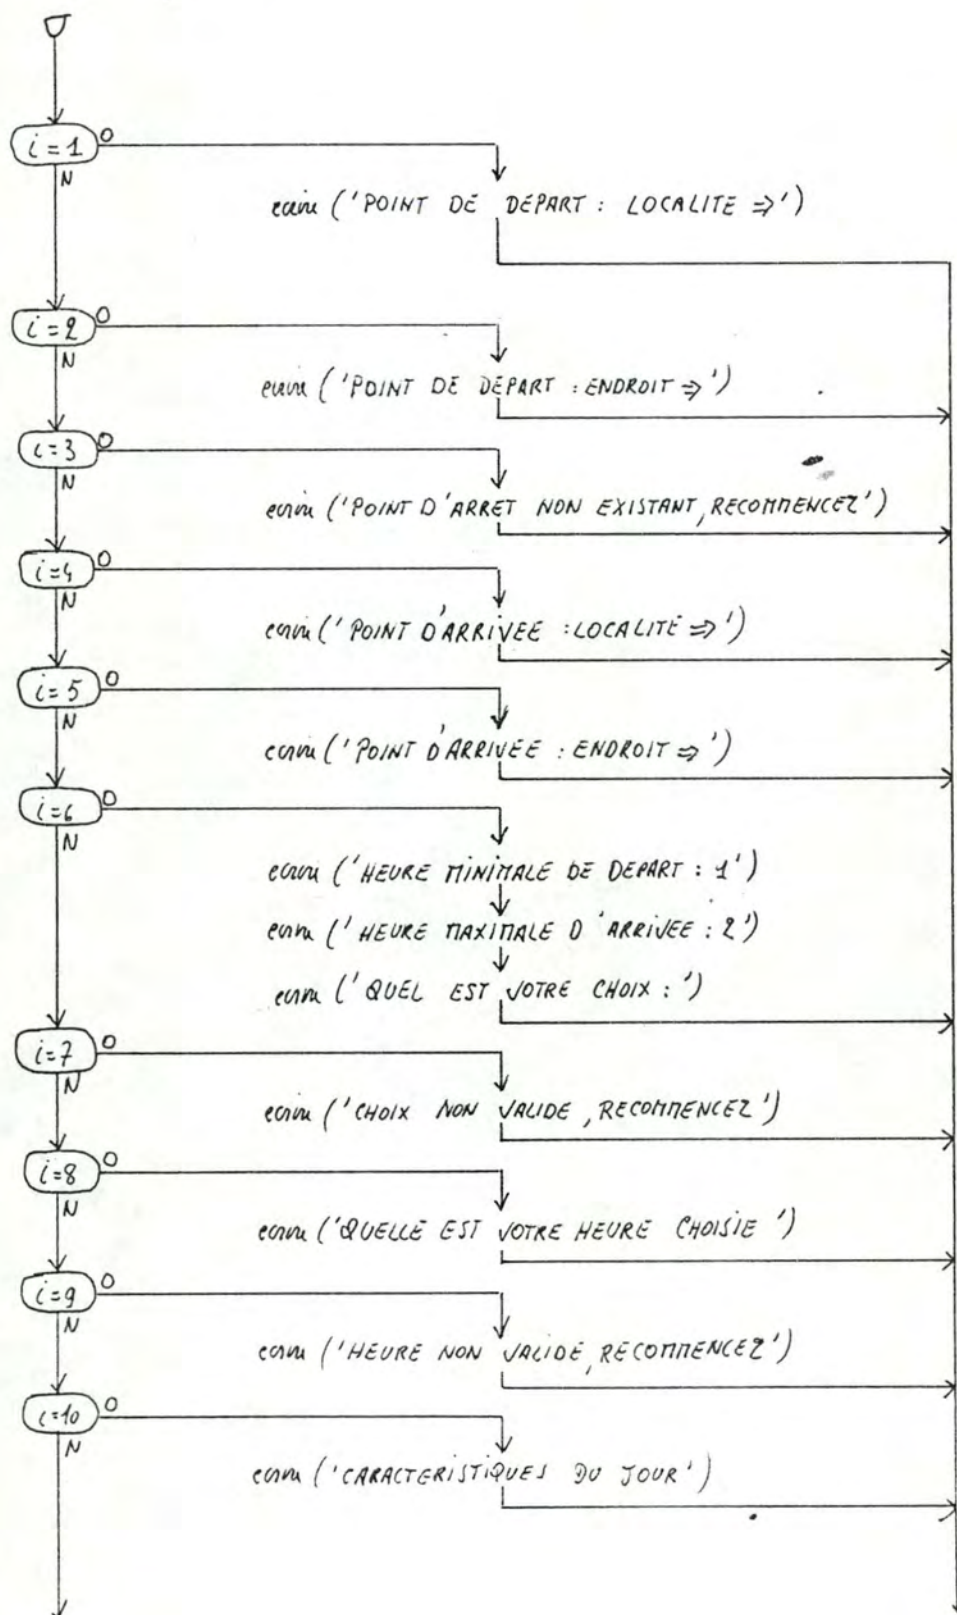 i=1 O
N
ecrire ('POINT DE DEPART : LOCALITE =>')
i=2 O
N
ecrire ('POINT DE DEPART : ENDROIT =>')
i=3 O
N
ecrire ('POINT D'ARRET NON EXISTANT, RECOMMENCEZ')
i=4 O
N
ecrire ('POINT D'ARRIVEE : LOCALITE =>')
i=5 O
N
ecrire ('POINT D'ARRIVEE : ENDROIT =>')
i=6 O
N
ecrire ('HEURE MINIMALE DE DEPART : 1')
ecrire ('HEURE MAXIMALE D'ARRIVEE : 2')
ecrire ('QUEL EST VOTRE CHOIX : ')
i=7 O
N
ecrire ('CHOIX NON VALIDE, RECOMMENCEZ')
i=8 O
N
ecrire ('QUELLE EST VOTRE HEURE CHOISIE ')
i=9 O
N
ecrire ('HEURE NON VALIDE, RECOMMENCEZ')
i=10 O
N
ecrire ('CARACTERISTIQUES DU JOUR')